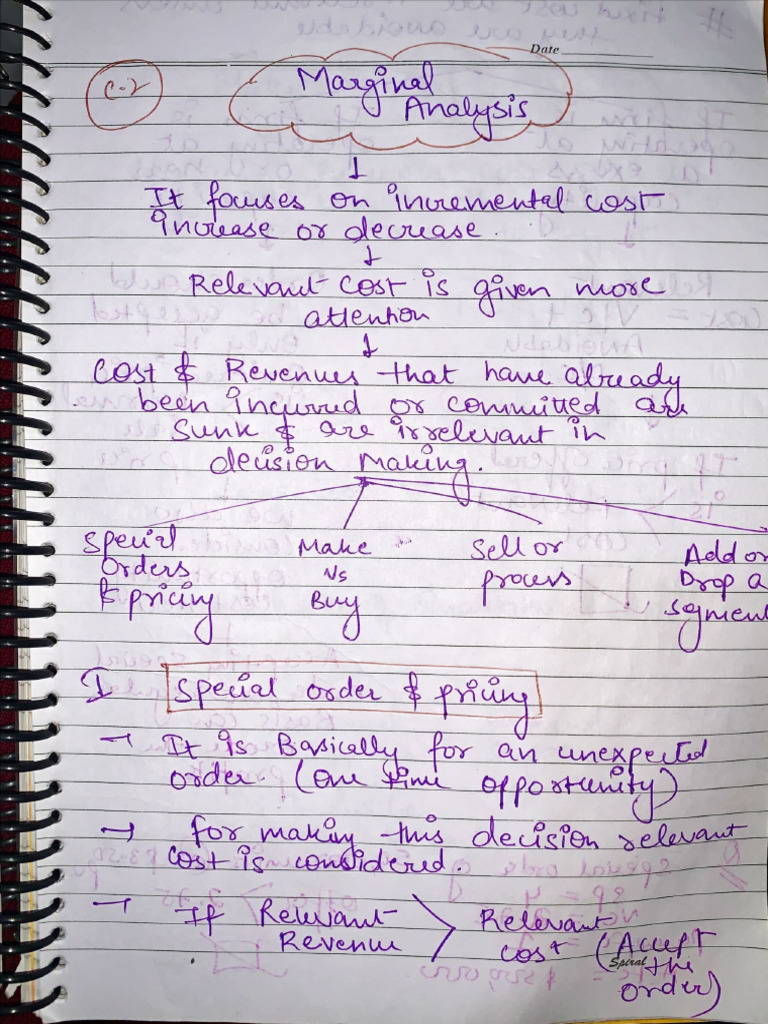 Date
C-2
Marginal
Analysis
It focuses on incremental cost
increase or decrease.
Relevant cost is given more
attention
Cost & Revenues that have already
been incurred or committed are
sunk & are irrelevant in
decision making.
Special
orders
& pricing
Make
Vs
Buy
Sell or
process
Add or
Drop a
segment
I Special order & pricing
→ It is Basically for an unexpected
order. (One time opportunity)
→ for making this decision relevant
cost is considered.
→ If Relevant
Revenue > Relevant
cost (Accept
the
order)
Spiral